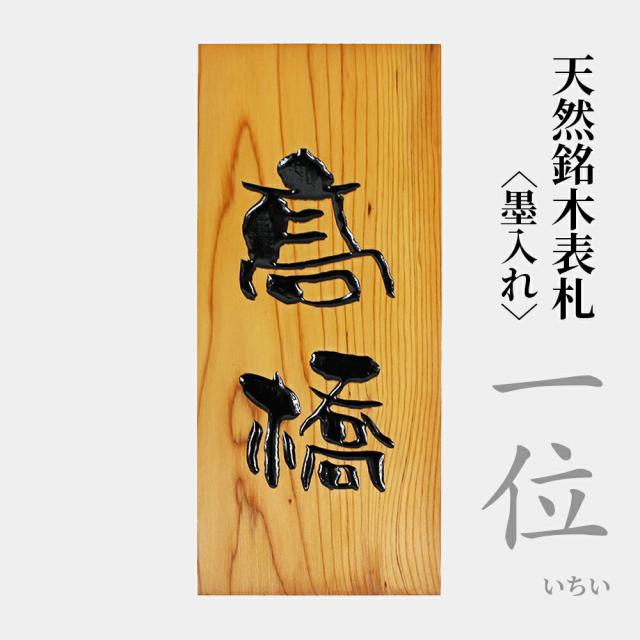 天然銘木表札
〈墨入れ〉
一位
いちい
髙橋